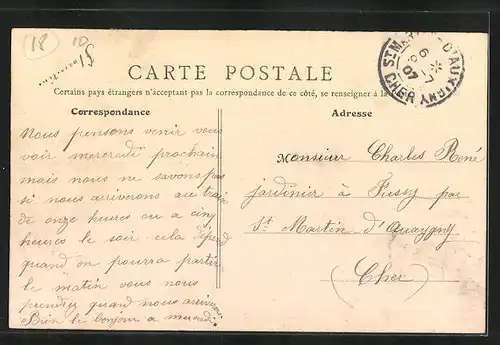 18 10
CARTE POSTALE
Certains pays étrangers n'acceptant pas la correspondance de ce côté, se renseigner à la
Correspondance
Adresse
Nous pensons venir vous
voir mercredi prochain
mais nous ne savons pas
si nous arriverons au train
de onze heures ou a cinq
heures le soir cela dépend
quand on pourra partir
le matin vous nous
quand nous arriverons
Bien le bonjour a mercredi
Monsieur Charles René
jardinier à Fussy par
St Martin d'Auxygny
(Cher)
ST MARTIN-D'AUXIGNY
6 -7
07
CHER